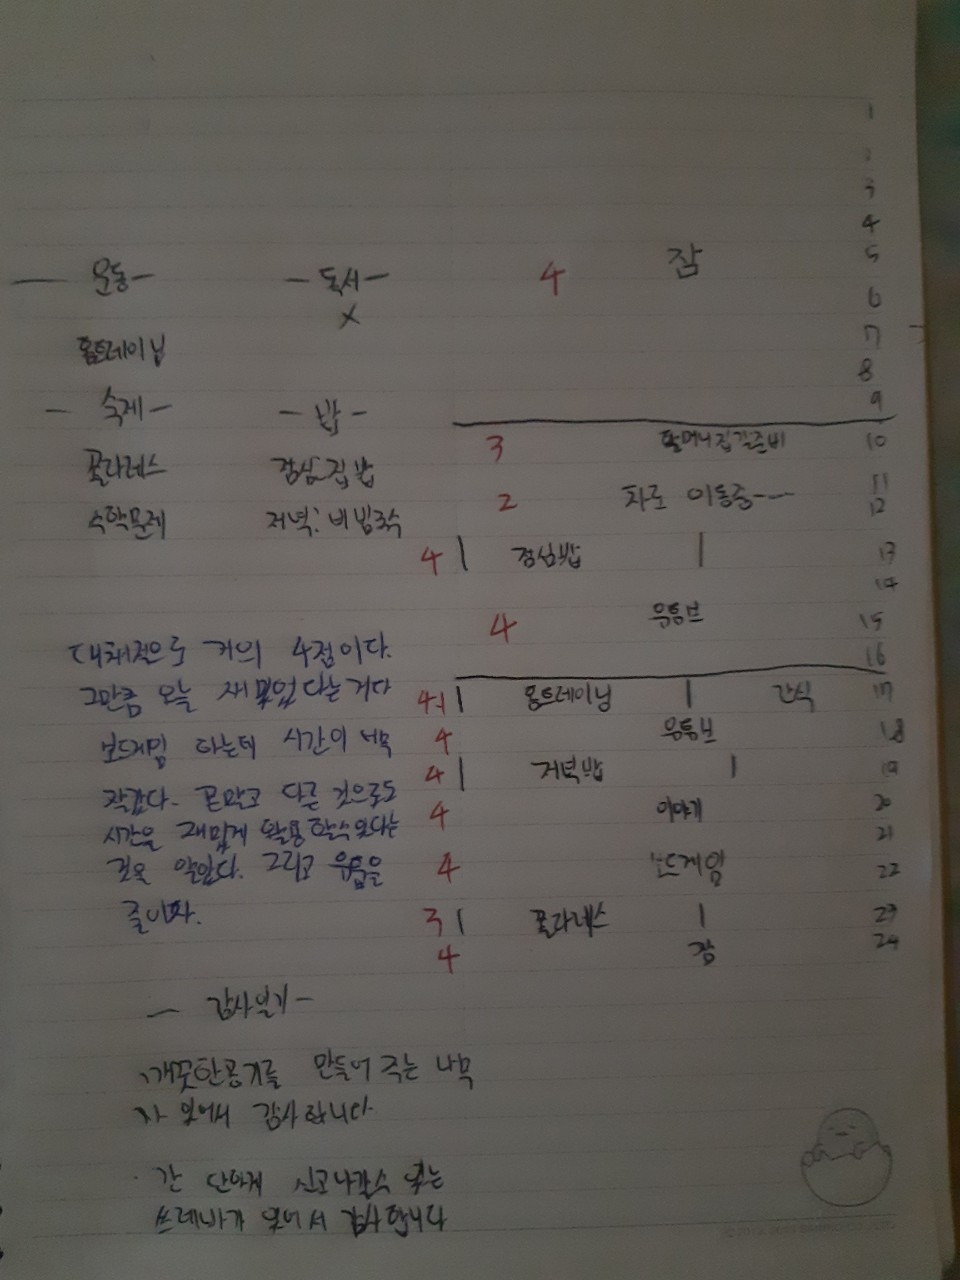 - 운동 -
홈트레이닝
- 숙제 -
꼴라레스
수학문제
- 독서 -
X
- 밥 -
점심: 집밥
저녁: 비빔국수
대체적으로 거의 4점이다.
그만큼 오늘 재밌었다는거다
보드게임 하는데 시간이 너무
작같다. 폰말고 다른 것으로도
시간을 재밌게 활용할수있다는
것을 알았다. 그리고 유튭을
줄이자.
- 감사일기 -
깨끗한공기를 만들어 주는 나무
가 있어서 감사합니다
· 간단하게 신고나갈수 있는
쓰레바가 있어서 감사합니다
1
2
3
4
4 잠 5
6
7
8
9
3 할머니집갈준비 10
11
2 차로 이동중---- 12
4 | 점심밥 | 13
14
4 유튜브 15
16
4 | 홈트레이닝 | 간식 17
4 유튜브 18
4 | 저녁밥 | 19
4 이야기 20
21
4 보드게임 22
3 | 꼴라레스 | 23
4 잠 24